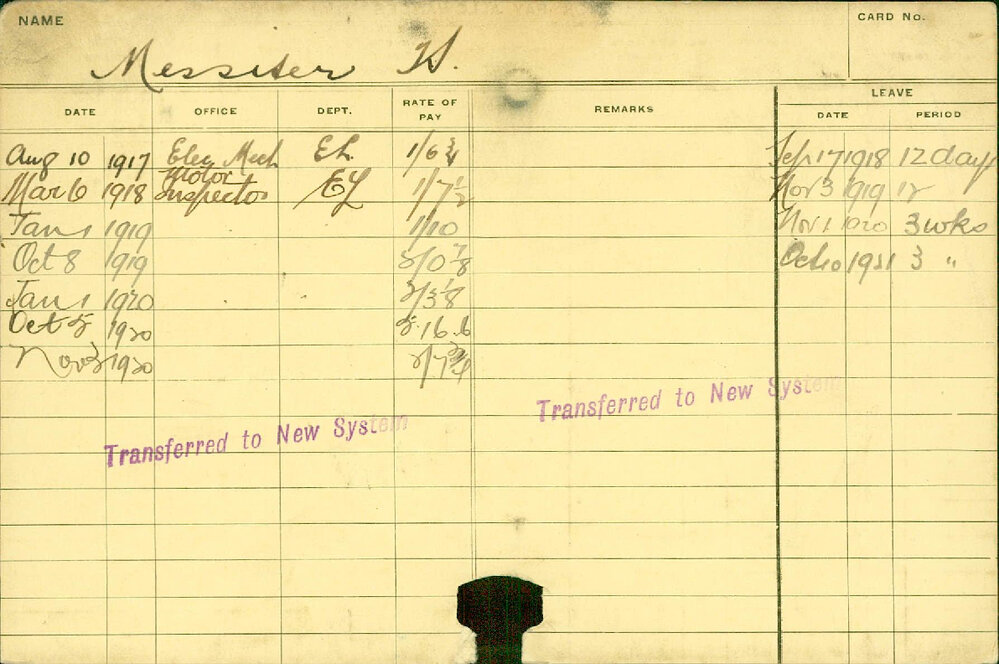 NAME
CARD No.
Messiter H.
LEAVE
DATE OFFICE DEPT. RATE OF PAY REMARKS DATE PERIOD
Aug 10 1917 Elec Mech EL 1/6 3/4 Sep 17 1918 12 days
Mar 6 1918 Motor Inspector EL 1/7 1/2 Nov 3 1919 12
Jan 1 1919 1/10 Nov 1 1920 3 wks
Oct 8 1919 2/0 7/8 Oct 10 1921 3 "
Jan 1 1920 2/3 1/8
Oct 5 1920 5.16.6
Nov 3 1920 2/7 3/4
Transferred to New System
Transferred to New System